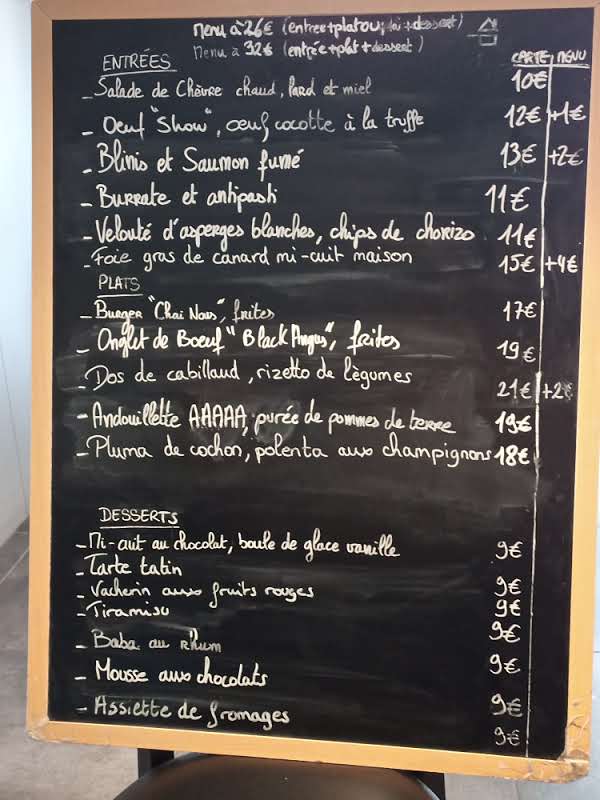 Menu à 26€ (entrée+plat ou plat+dessert)
Menu à 32€ (entrée+plat+dessert)
ENTRÉES CARTE MENU
- Salade de Chèvre chaud, lard et miel 10€
- Oeuf "Show", oeuf cocotte à la truffe 12€ +1€
- Blinis et Saumon fumé 13€ +2€
- Burrate et antipasti 11€
- Velouté d'asperges blanches, chips de chorizo 11€
- Foie gras de canard mi-cuit maison 15€ +4€
PLATS
- Burger "Chai Nous", frites 17€
- Onglet de Boeuf "Black Angus", frites 19€
- Dos de cabillaud, rizetto de lègumes 21€ +2€
- Andouillette AAAAA, purée de pommes de terre 19€
- Pluma de cochon, polenta aux champignons 18€
DESSERTS
- Mi-cuit au chocolat, boule de glace vanille 9€
- Tarte tatin 9€
- Vacherin aux fruits rouges 9€
- Tiramisu 9€
- Baba au rhum 9€
- Mousse aux chocolats 9€
- Assiette de fromages 9€